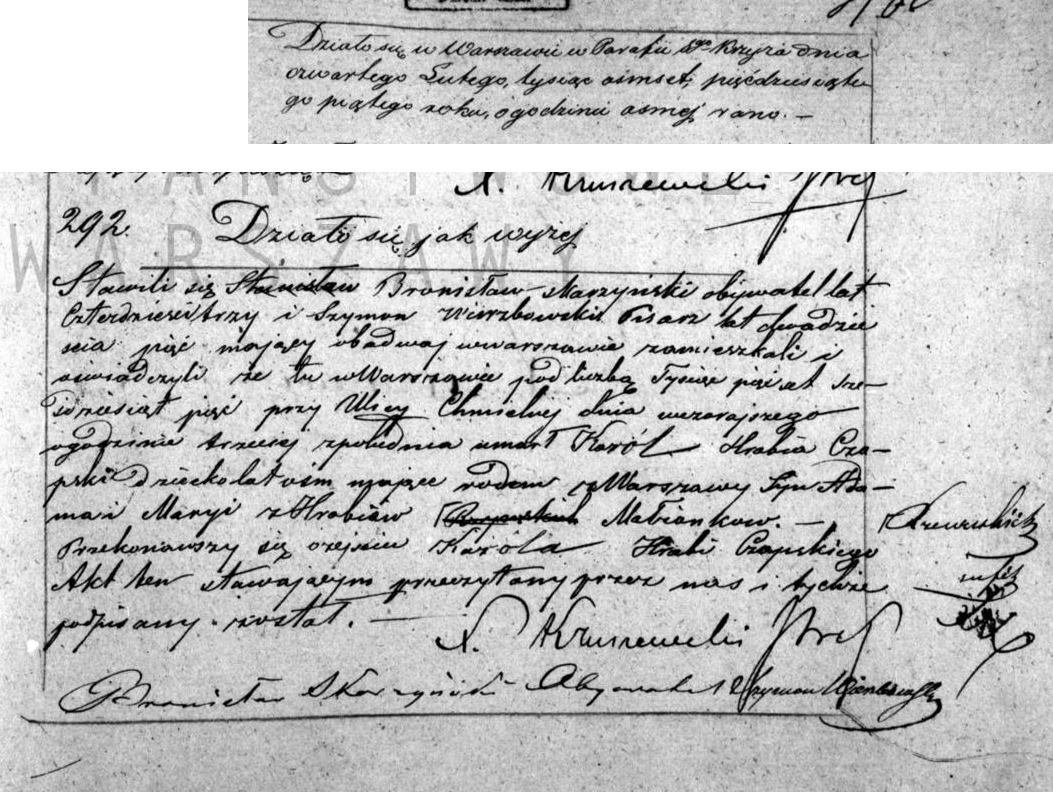 Działo się w Warszawie w Parafii Sgo Krzyża dnia
czwartego Lutego, tysiąc ośmset, pięćdziesiąte
go piątego roku, o godzinie ósmej rano. —
PAŃSTW
WARSZAWY
Kruszewski
292. Działo się jak wyżej
Stawili się Stanisław Bronisław Skarzyński obywatel lat
Czterdzieści trzy i Szymon Wierzbowski Pisarz lat dwadzie
scia pięć mający obadwaj w Warszawie zamieszkali i
oswiadczyli że tu w Warszawie pod liczbą Tysiąc pięćset sze-
dziesiąt pięć przy Ulicy Chmielnej dnia wczorajszego
o godzinie trzeciej z południa umarł Karól Hrabia Cza-
pski dziecko lat ośm mające rodem z Warszawy Syn Ada-
ma i Maryi z Hrabiów Małżonków. —
Przekonawszy się o zejściu Karóla Hrabi Czapskiego
Akt ten stawającym przeczytany przez nas i tychże
podpisany został. —
Kruszewski
Bronisław Skarzyński Obywatel Szymon Wierzbowski